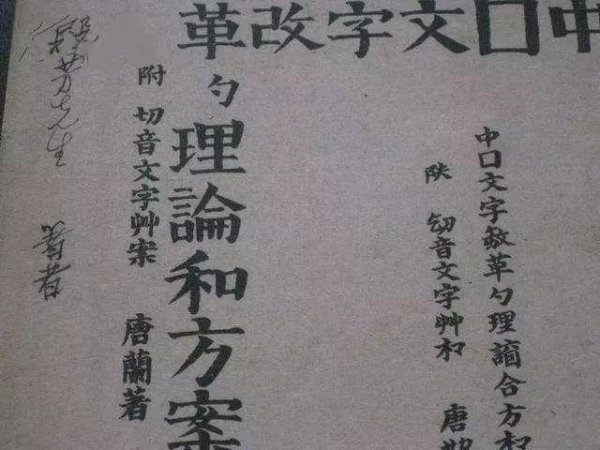 中口文字改革
中口文字革勺理合方
音文字艸
唐
勺
理論和方案
附 切音文字艸案
唐蘭著
芳先生
著者